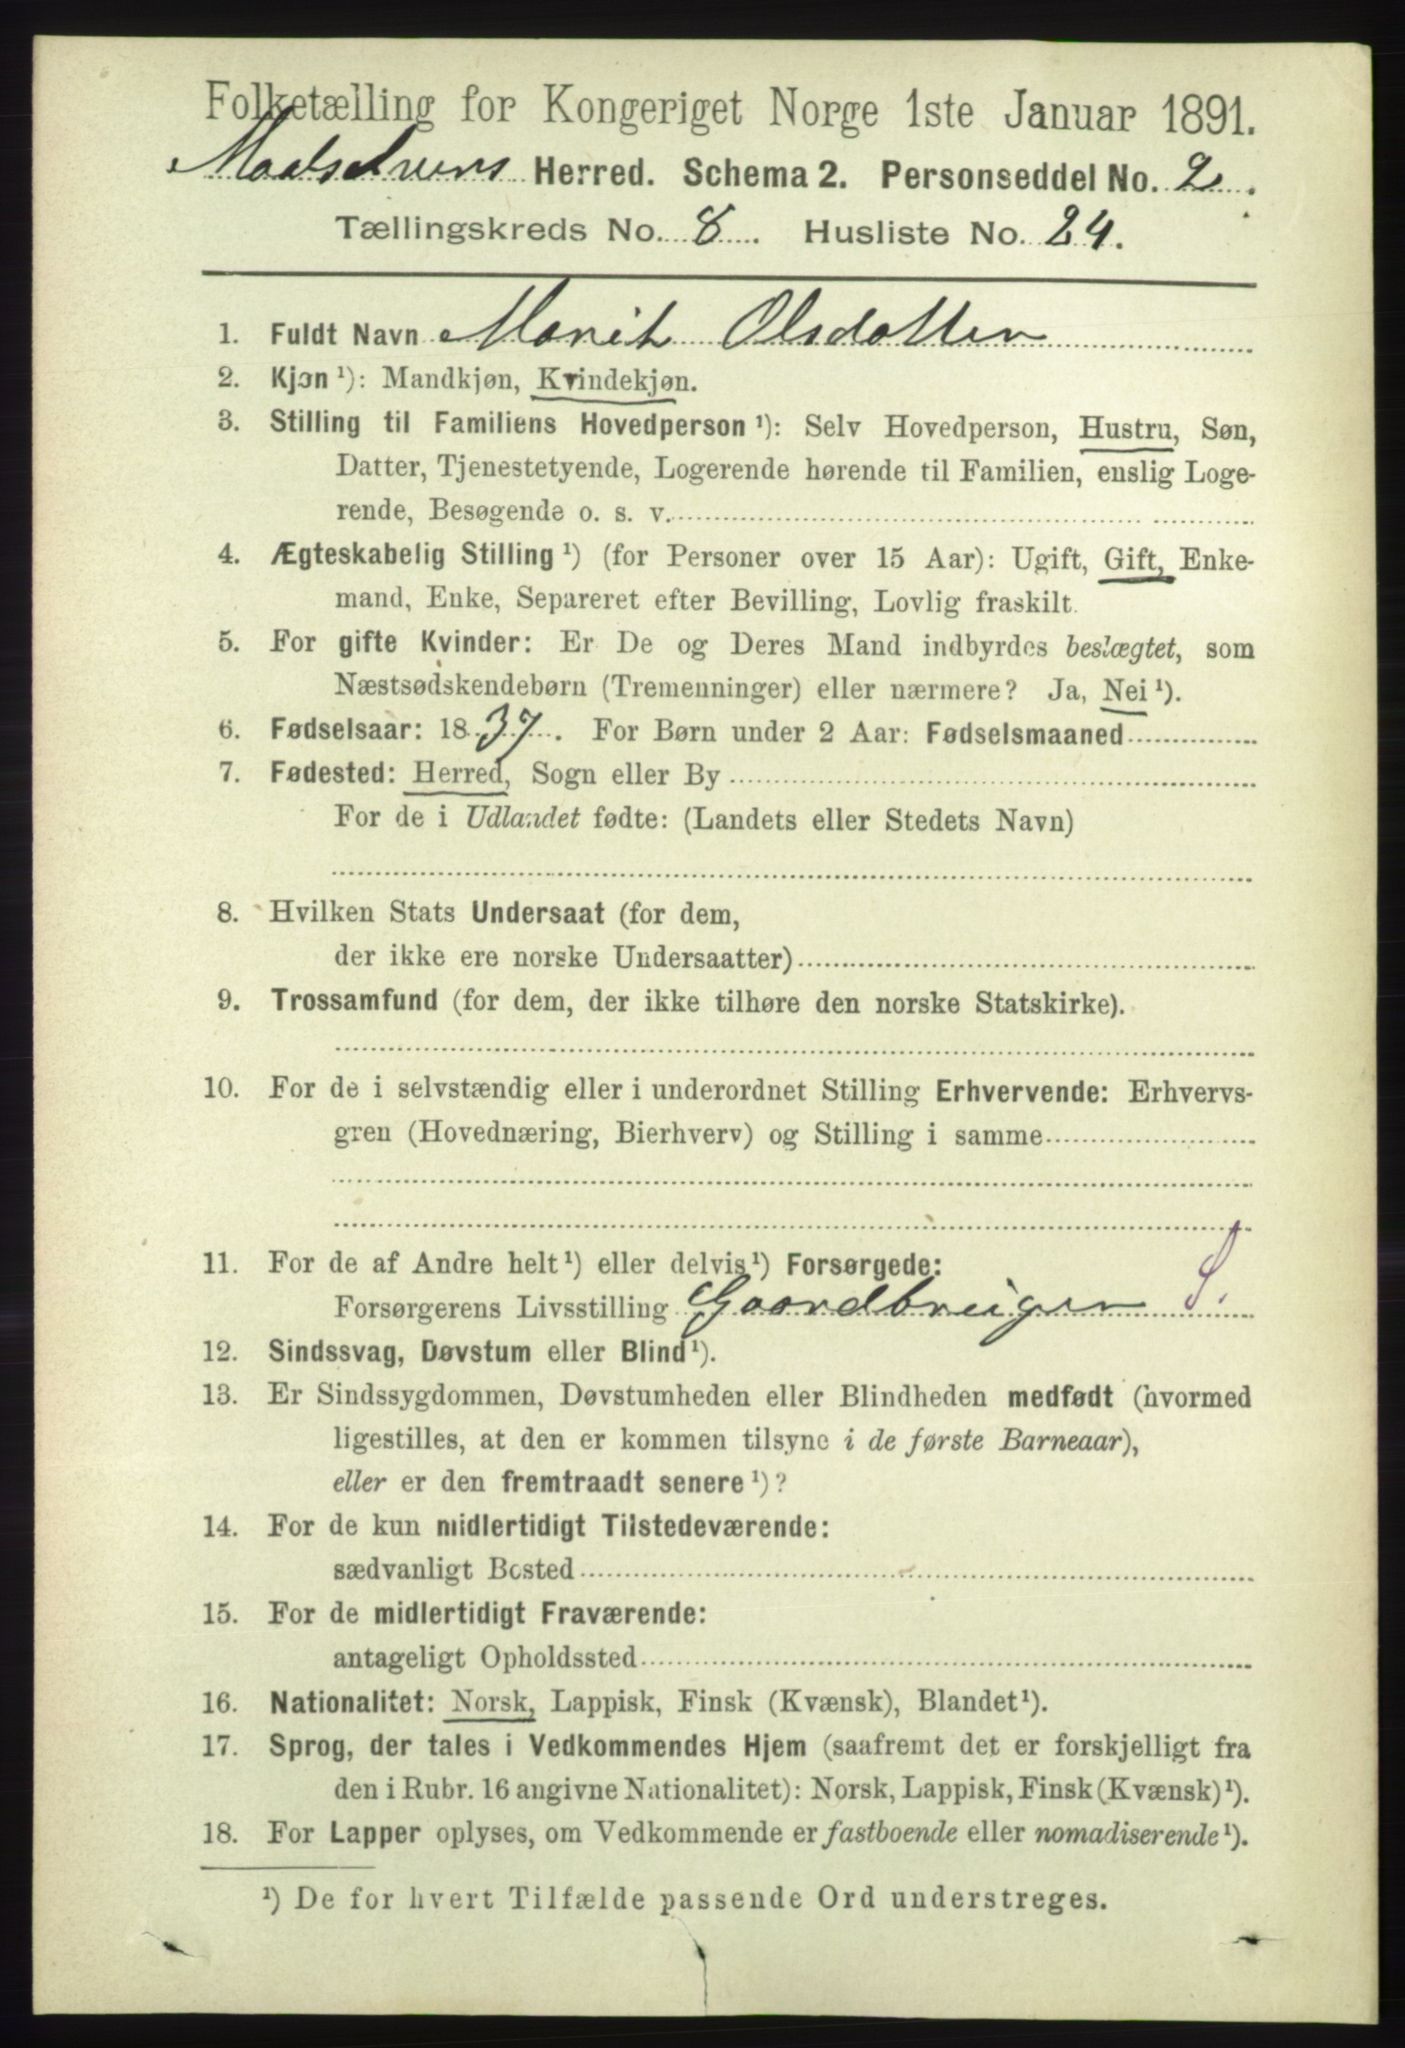 Folketælling for Kongeriget Norge 1ste Januar 1891.
Maalselvens Herred. Schema 2. Personseddel No. 2.
Tællingskreds No. 8. Husliste No. 24.
1. Fuldt Navn Marit Olsdatter
2. Kjøn ¹): Mandkjøn, Kvindekjøn.
3. Stilling til Familiens Hovedperson ¹): Selv Hovedperson, Hustru, Søn,
Datter, Tjenestetyende, Logerende hørende til Familien, enslig Loge-
rende, Besøgende o. s. v.
4. Ægteskabelig Stilling ¹) (for Personer over 15 Aar): Ugift, Gift, Enke-
mand, Enke, Separeret efter Bevilling, Lovlig fraskilt.
5. For gifte Kvinder: Er De og Deres Mand indbyrdes beslægtet, som
Næstsødskendebørn (Tremenninger) eller nærmere? Ja, Nei ¹).
6. Fødselsaar: 1837. For Børn under 2 Aar: Fødselsmaaned
7. Fødested: Herred, Sogn eller By
For de i Udlandet fødte: (Landets eller Stedets Navn)
8. Hvilken Stats Undersaat (for dem,
der ikke ere norske Undersaatter)
9. Trossamfund (for dem, der ikke tilhøre den norske Statskirke).
10. For de i selvstændig eller i underordnet Stilling Erhvervende: Erhvervs-
gren (Hovednæring, Bierhverv) og Stilling i samme
11. For de af Andre helt ¹) eller delvis ¹) Forsørgede:
Forsørgerens Livsstilling Gaardbruiger S.
12. Sindssvag, Døvstum eller Blind ¹).
13. Er Sindssygdommen, Døvstumheden eller Blindheden medfødt (hvormed
ligestilles, at den er kommen tilsyne i de første Barneaar),
eller er den fremtraadt senere ¹)?
14. For de kun midlertidigt Tilstedeværende:
sædvanligt Bosted
15. For de midlertidigt Fraværende:
antageligt Opholdssted
16. Nationalitet: Norsk, Lappisk, Finsk (Kvænsk), Blandet ¹).
17. Sprog, der tales i Vedkommendes Hjem (saafremt det er forskjelligt fra
den i Rubr. 16 angivne Nationalitet): Norsk, Lappisk, Finsk (Kvænsk) ¹).
18. For Lapper oplyses, om Vedkommende er fastboende eller nomadiserende ¹).
¹) De for hvert Tilfælde passende Ord understreges.